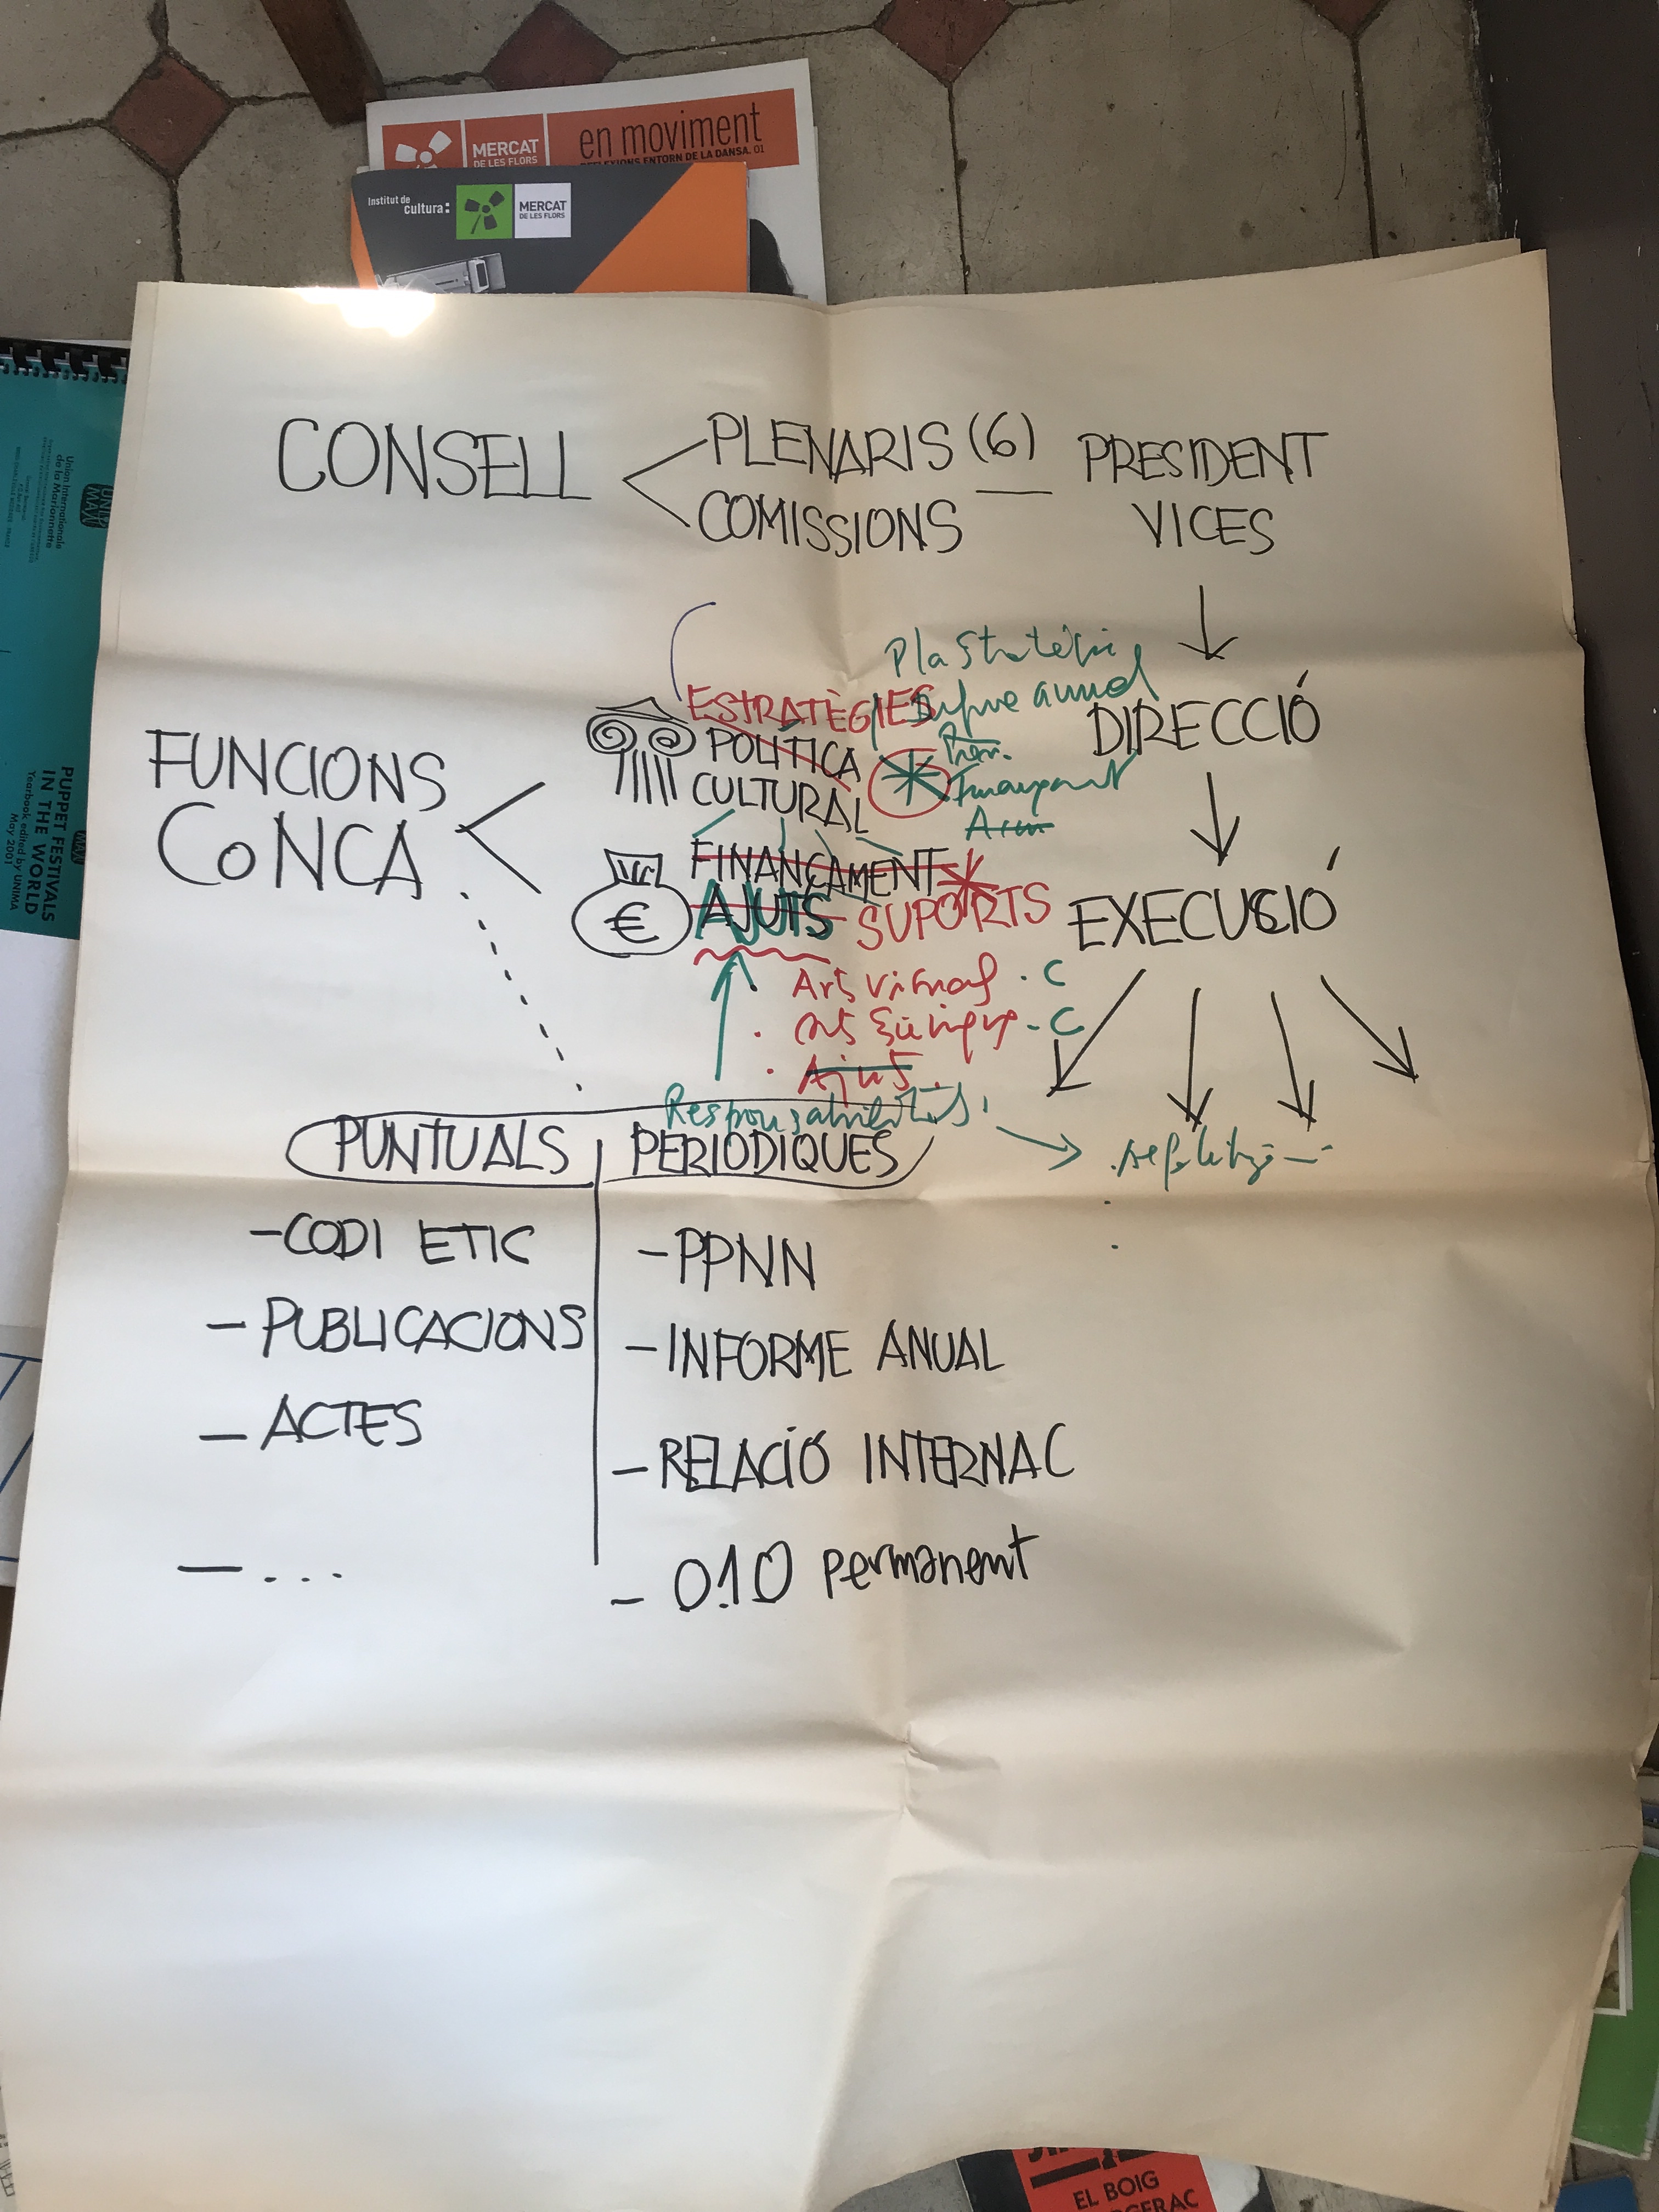 en moviment
MERCAT
DE LES FLORS
REFLEXIONS ENTORN DE LA DANSA. 01
Institut de
cultura:
MERCAT
DE LES FLORS
Union Internationale
de la Marionnette
PUPPET FESTIVALS
IN THE WORLD
Yearbook edited by UNIMA
May 2001
CONSELL
PLENARIS (6)
COMISSIONS
PRESIDENT
VICES
DIRECCIÓ
EXECUCIÓ
FUNCIONS
CoNCA
ESTRATÈGIES
POLÍTICA
CULTURAL
FINANÇAMENT
AJUTS SUPORTS
€
Arts Visuals . C
- C
Ajuts
Responsabilitats
PUNTUALS
PERIODIQUES
-CODI ETIC
- PUBLICACIONS
- ACTES
- ...
-PPNN
-INFORME ANUAL
-RELACIÓ INTERNAC
- 0.10 permanent
EL BOIG